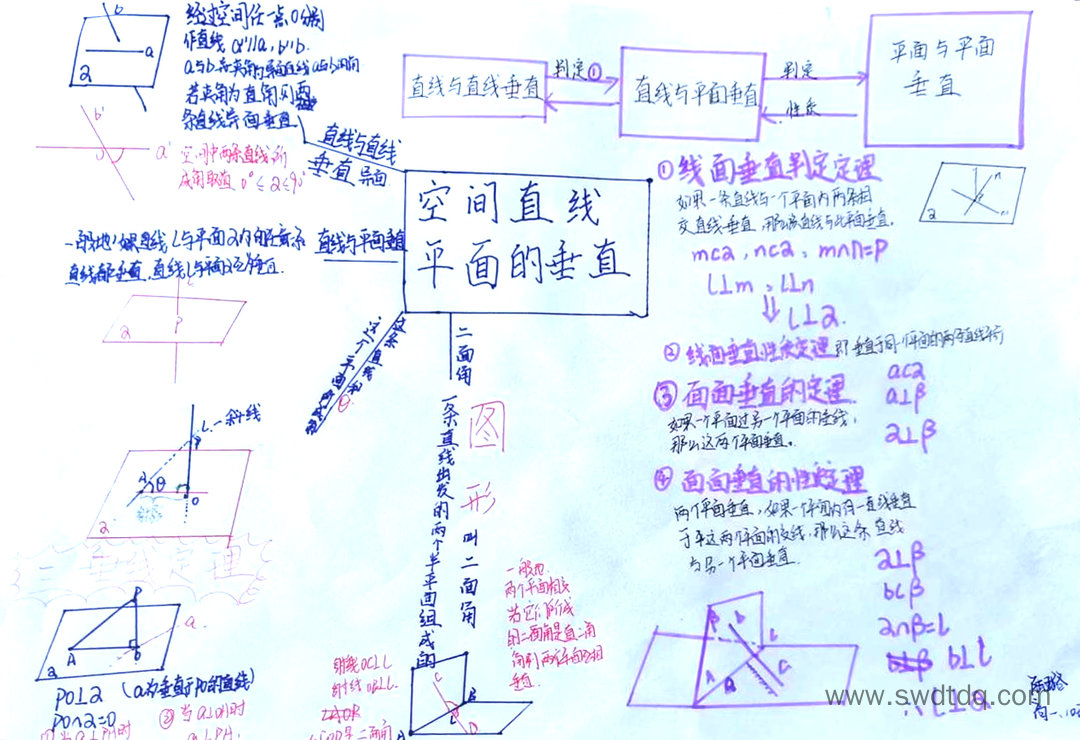 经过空间任一点O分别
作直线 a'∥a, b'∥b.
若夹角为直角则两
条直线异面垂直
b
a
2
b'
O
a'
空间中两条直线所
成角取值 0°≤2≤90°
直线与直线
垂直 异面
直线与直线垂直
判定①
直线与平面垂直
判定
性质
平面与平面
垂直
空间直线
平面的垂直
一般地,如果直线l与平面2内的任意一条
直线都垂直,直线l与平面2互为垂直.
直线与平面垂直
l
P
2
这条直线和
这个平面
θ
二面角
一条直线出发的两个半平面组成的
图形
叫二面角
l.一斜线
P
A
θ
O
2
三垂线定理
P
A
O
a
2
PO⊥2 (a为垂直于PO的直线)
PO∩2=O
② 当a⊥OA时
一般地.
两个平面相交
若它们所成
的二面角是直二角
向则两个平面互相
垂直.
射线OC⊥L
射线OD⊥L.
①线面垂直判定定理
如果一条直线与一个平面内两条相
交直线垂直,那么该直线与此平面垂直.
m⊂2,n⊂2,m∩n=P
l⊥m,l⊥n
⇓ l⊥2.
②线面垂直性质定理 即垂直于同一个平面的两条直线平行
③面面垂直的定理.
a⊂2
a⊥β
2⊥β
如果一个平面过另一个平面的垂线,
那么这两个平面垂直。
④面面垂直的性质定理
两个平面垂直,如果一个平面内有一直线垂直
于平这两个平面的交线,那么这条直线
与另一个平面垂直.
2⊥β
b⊂β
2∩β=l
b⊥l
www.swdtdq.com